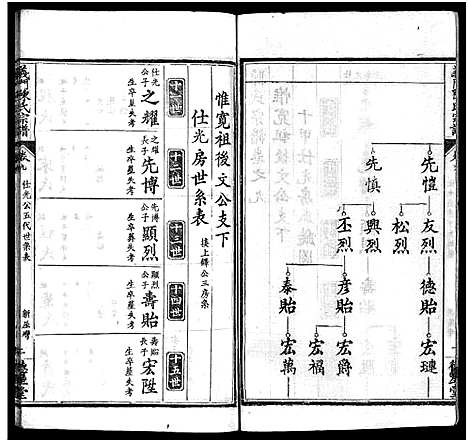 先愷
友烈
德貽
宏璉
先慎
松烈
興烈
丕烈
彦貽
宏爵
宏福
泰貽
宏萬
惟寛祖後文公支下
仕光房世系表
接上鐸公三房系
十一世
仕光公子
之耀
生卒葬失考
十二世
之耀長子
先博
生卒葬失考
十三世
先博子
顯烈
生卒葬失考
十四世
顯烈長子
壽貽
生卒葬失考
十五世
壽貽長子
宏陞
生卒葬失考
義門陳氏宗譜
卷九
仕光公五代世系表
德星堂